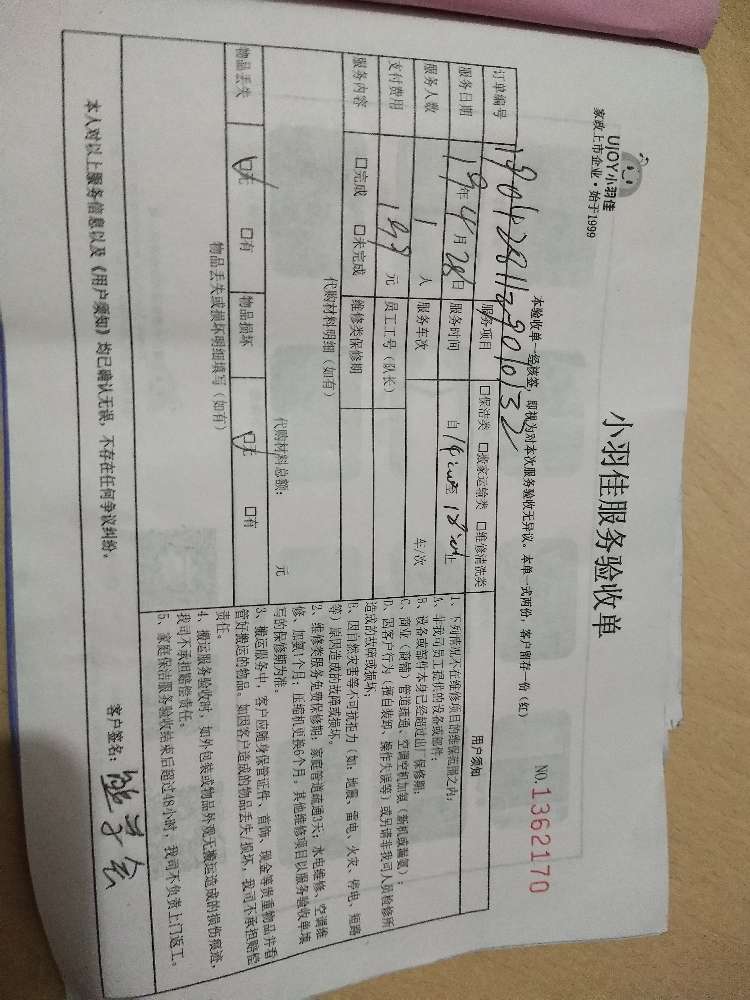 UJOY小羽佳
家政上市企业·始于1999
小羽佳服务验收单
本验收单一经核签，即视为对本次服务验收无异议。本单一式两份，客户留存一份（红）
NO.1362170
订单编号
服务项目 □保洁类 □搬家运输类 □维修清洗类
服务日期 19年4月28日 服务时间 自14:00至18:00止
服务人数 1人 服务车次 车/次
支付费用 199元 员工工号（队长）
服务内容 □完成 □未完成 维修类保修期
代购材料明细（如有）
代购材料总额： 元
物品丢失 □无 □有 物品损坏 □无 □有
物品丢失或损坏明细填写（如有）
用户须知
1、下列情况不在维修项目的维保范围之内：
A、非我司员工提供的设备或部件；
B、设备或部件本身已经超过出厂保修期；
C、商业（商铺）管道疏通、空调空机加氟（新机或漏氟）；
D、因客户行为（擅自装卸、操作失误等）或另请非我司人员检修所
造成的故障或损坏；
E、因自然灾害等不可抗拒力（如：地震、雷电、火灾、停电、短路
等）原因造成的故障或损坏。
2、维修类服务免费保修期：家庭管道疏通3天；水电维修、空调维
修、加氟1个月；压缩机更换6个月，其他维修项目以服务验收单填
写的保修期为准。
3、搬运服务中，客户应随身保管证件、首饰、现金等贵重物品并看
管好搬运的物品，如因客户造成的物品丢失/损坏，我司不承担赔偿
责任。
4、搬运服务验收时，如外包装或物品外观无搬运造成的损伤痕迹，
我司不承担赔偿责任。
5、家庭保洁服务验收结束后超过48小时，我司不负责上门返工。
本人对以上服务信息以及《用户须知》均已确认无误，不存在任何争议纠纷。
客户签名：